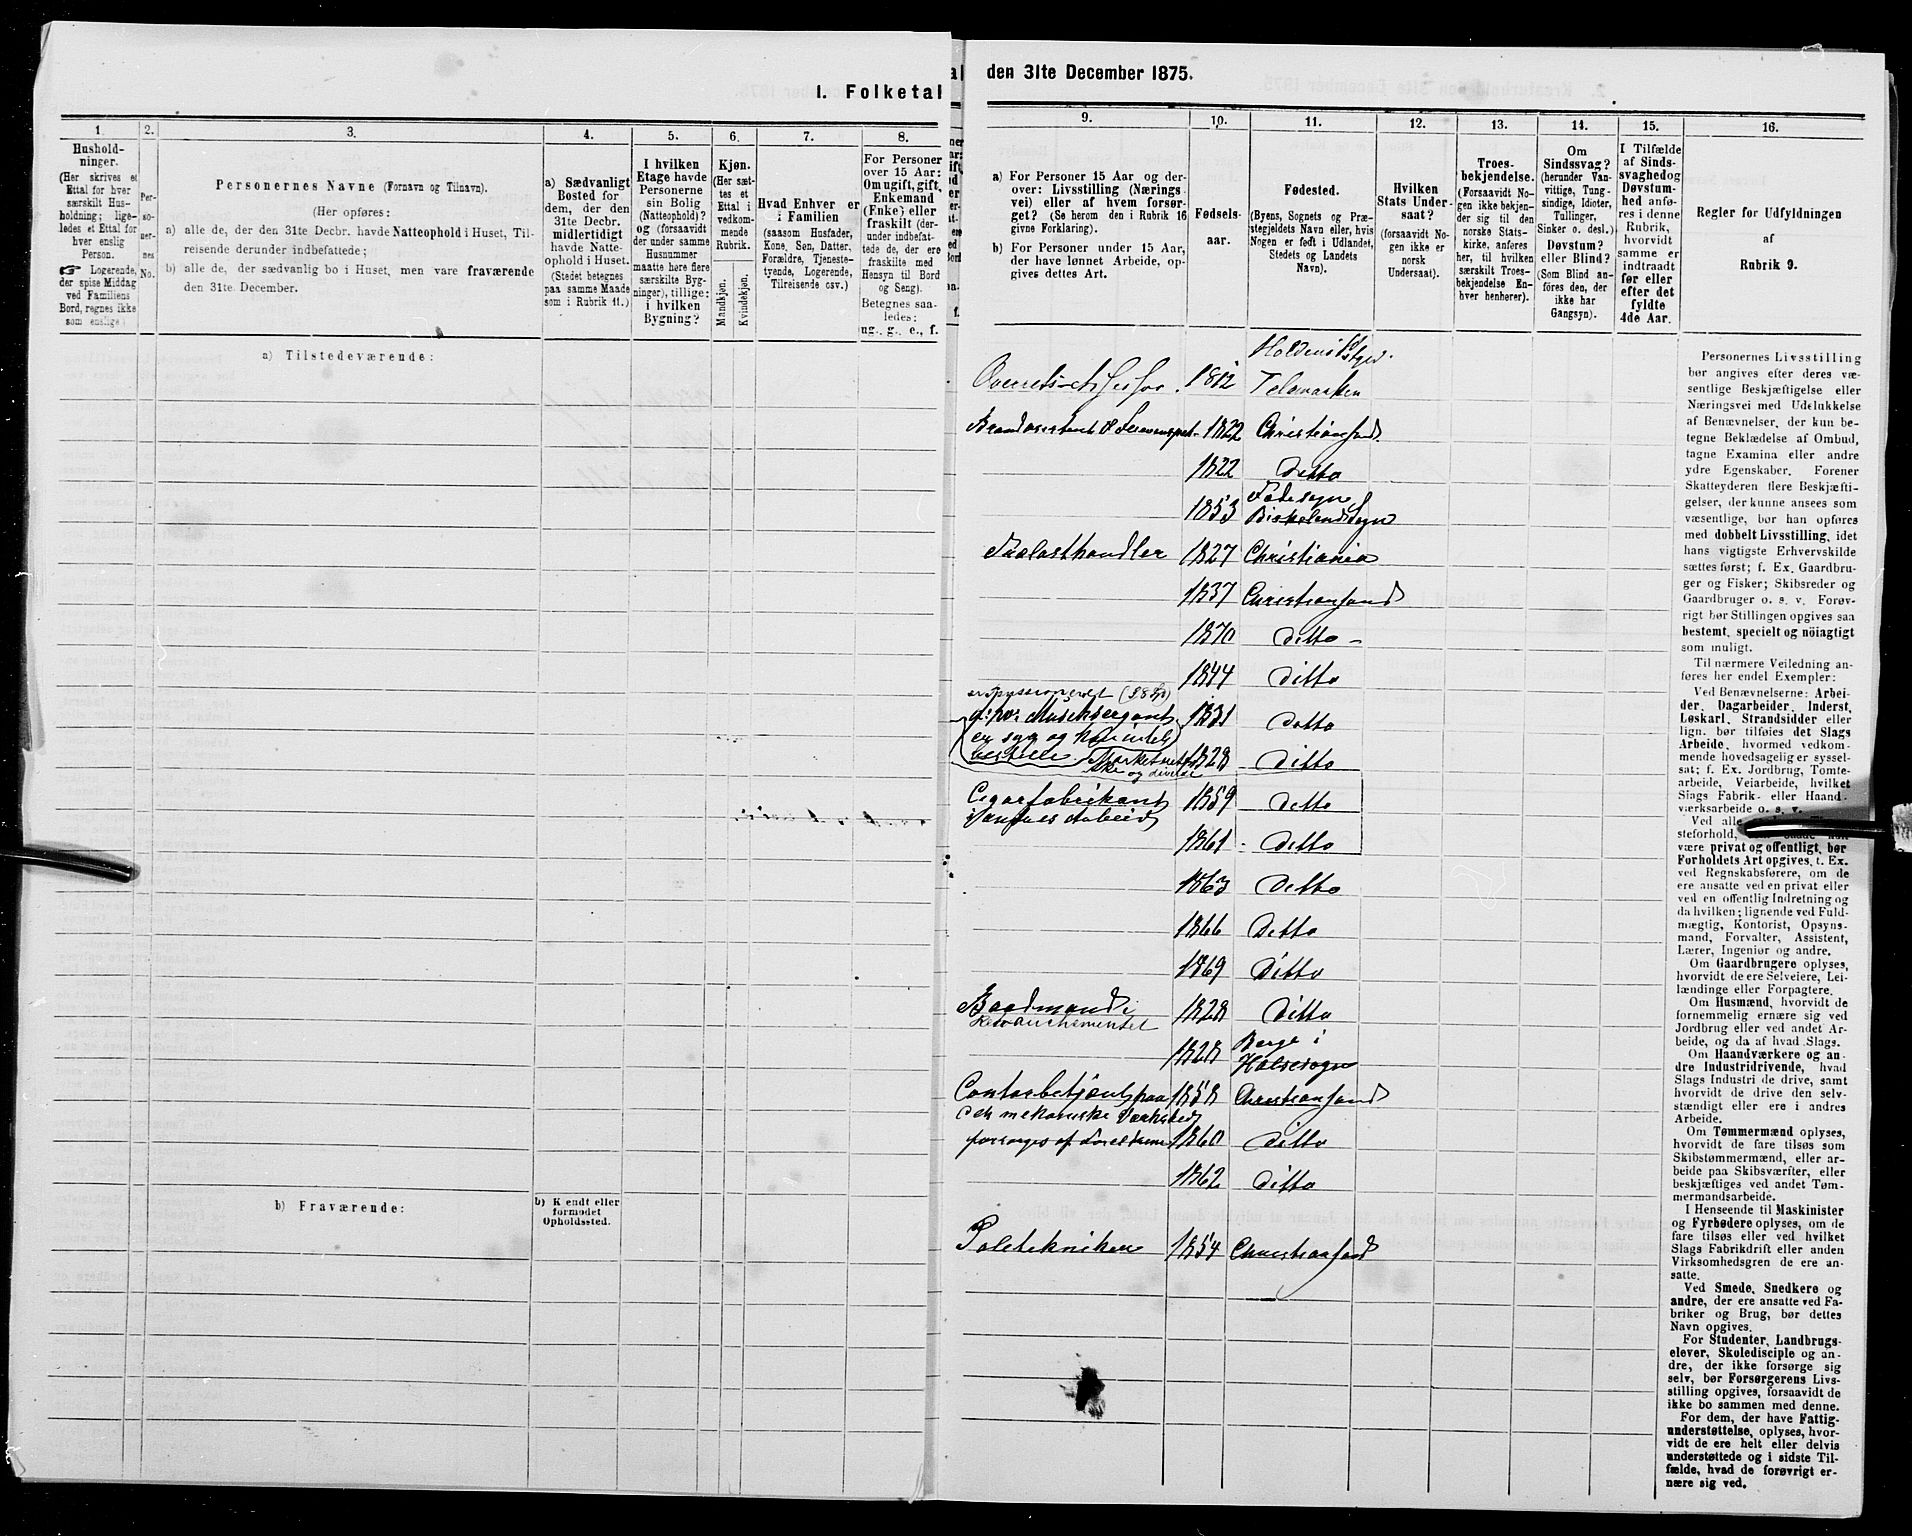 I. Folketal
den 31te December 1875.
1.
2.
3.
4.
5.
6.
7.
8.
Hushold-
ninger.
(Her skrives et
Ettal for hver
særskilt Hus-
holdning; lige-
ledes et Ettal for
hver enslig
Person.
☞ Logerende,
der spise Middag
ved Familiens
Bord, regnes ikke
som enslige)
Per-
so-
ner-
nes
No.
Personernes Navne (Fornavn og Tilnavn).
(Her opføres:
a) alle de, der den 31te Decbr. havde Natteophold i Huset, Til-
reisende derunder indbefattede;
b) alle de, der sædvanlig bo i Huset, men vare fraværende
den 31te. December.)
a) Sædvanligt
Bosted for
dem, der den
31te Decbr.
midlertidigt
havde Natte-
ophold i Huset.
(Stedet betegnes
paa samme Maade
som i Rubrik 11.)
I hvilken
Etage havde
Personerne
sin Bolig
(Natteophold)?
og (forsaavidt
der under samme
Husnummer
maatte høre flere
særskilte Byg-
ninger), tillige:
i hvilken
Bygning?
Kjøn.
(Her sæt-
tes et
Ettal i
vedkom-
mende
Rubrik.
Mandkjøn.
Kvindekjøn.
Hvad Enhver er
i Familien
(saasom Husfader,
Kone, Søn, Datter,
Forældre, Tjeneste-
tyende, Logerende,
Tilreisende osv.)
For Personer
over 15 Aar:
Om ugift, gift,
Enkemand
(Enke) eller
fraskilt (der-
under indbefat-
tede de, der ere
fraskilte med
Hensyn til Bord
og Seng).
Betegnes saa-
ledes:
ug., g., e., f.
a) Tilstedeværende:
b) Fraværende:
b) Kjendt eller
formodet
Opholdssted.
9.
10.
11.
12.
13.
14.
15.
16.
a) For Personer 15 Aar og der-
over: Livsstilling (Nærings-
vei) eller af hvem forsør-
get? (Se herom den i Rubrik 16
givne Forklaring).
b) For Personer under 15 Aar,
der have lønnet Arbeide, op-
gives dettes Art.
Fødsels-
aar.
Fødested.
(Byens, Sognets og Præ-
stegjeldets Navn eller, hvis
Nogen er født i Udlandet,
Stedets og Landets
Navn).
Hvilken
Stats Under-
saat?
(forsaavidt No-
gen ikke er
norsk
Undersaat).
Troes-
bekjendelse.
(Forsaavidt No-
gen ikke bekjen-
der sig til den
norske Stats-
kirke, anføres
her, til hvilken
særskilt Troes-
bekjendelse En-
hver henhører).
Om
Sindssvag?
(herunder Van-
vittige, Tung-
sindige, Idioter,
Tullinger,
Sinker o. desl.)
Døvstum?
eller Blind?
(Som Blind an-
føres den, der
ikke har
Gangsyn).
I Tilfælde
af Sinds-
svaghed og
Døvstum-
hed anfø-
res i denne
Rubrik,
hvorvidt
samme er
indtraadt
før eller
efter det
fyldte
4de Aar.
Regler for Udfyldningen
af
Rubrik 9.
1812
Telemarken
1822 Christiansand
1822 Ditto
1853
Trælasthandler 1827 Christiania
1837 Christiansand
1870 Ditto
1844 Ditto
1831 Ditto
er syg og kan intet
bestille. 1828 Ditto
Cigarfabrikant 1859 Ditto
1861 Ditto
1863 Ditto
1866 Ditto
1869 Ditto
Baadmand i 1828 Ditto
Berge i
1828 Halsesogn
Contorbetjent paa 1858 Christiansand
det mekaniske Værksted
forsørges af Forældrene 1860 Ditto
1862 Ditto
Politekniker 1854 Christiansand
Personernes Livsstilling
bør angives efter deres væ-
sentlige Beskjæftigelse eller
Næringsvei med Udelukkelse
af Benævnelser, der kun be-
tegne Beklædelse af Ombud,
tagne Examina eller andre
ydre Egenskaber. Forener
Skatteyderen flere Beskjæfti-
gelser, der kunne ansees som
væsentlige, bør han opføres
med dobbelt Livsstilling, idet
hans vigtigste Erhvervskilde
sættes først; f. Ex. Gaardbru-
ger og Fisker; Skibsreder og
Gaardbruger o. s. v. Forøv-
rigt bør Stillingen opgives saa
bestemt, specielt og nöiagtigt
som muligt.
Til nærmere Veiledning an-
føres her endel Exempler:
Ved Benævnelserne: Arbei-
der, Dagarbeider, Inderst,
Løskarl, Strandsidder eller
lign. bør tilføies det Slags
Arbeide, hvormed vedkom-
mende hovedsagelig er syssel-
sat; f. Ex. Jordbrug, Tomte-
arbeide, Veiarbeide, hvilket
Slags Fabrik- eller Haand-
værksarbeide o. s. v.
Ved alle
steforhold,
være privat og offentligt, bør
Forholdets Art opgives, t. Ex.
ved Regnskabsførere, om de
ere ansatte ved en privat eller
ved en offentlig Indretning og
da hvilken; lignende ved Fuld-
mægtig, Kontorist, Opsyns-
mand, Forvalter, Assistent,
Lærer, Ingeniør og andre.
Om Gaardbrugere oplyses,
hvorvidt de ere Selveiere, Lei-
lændinge eller Forpagtere.
Om Husmænd, hvorvidt de
fornemmelig ernære sig ved
Jordbrug eller ved andet Ar-
beide, og da af hvad Slags.
Om Haandværkere og an-
dre Industridrivende, hvad
Slags Industri de drive, samt
hvorvidt de drive den selv-
stændigt eller ere i andres
Arbeide.
Om Tømmermænd oplyses,
hvorvidt de fare tilsøs som
Skibstømmermænd, eller ar-
beide paa Skibsværfter, eller
beskjæftiges ved andet Tøm-
mermandsarbeide.
I Henseende til Maskinister
og Fyrbødere oplyses, om de
fare tilsøs eller ved hvilket
Slags Fabrikdrift eller anden
Virksomhedsgren de ere an-
satte.
Ved Smede, Snedkere og
andre, der ere ansatte ved Fa-
briker og Brug, bør dettes
Navn opgives.
For Studenter, Landbrugs-
elever, Skoledisciple og an-
dre, der ikke forsørge sig
selv, bør Forsørgerens Livs-
stilling opgives, forsaavidt de
ikke bo sammen med denne.
For dem, der have Fattig-
understøttelse, oplyses, hvor-
vidt de ere helt eller delvis
understøttede og i sidste Til-
fælde, hvad de forøvrigt er-
nære sig ved.